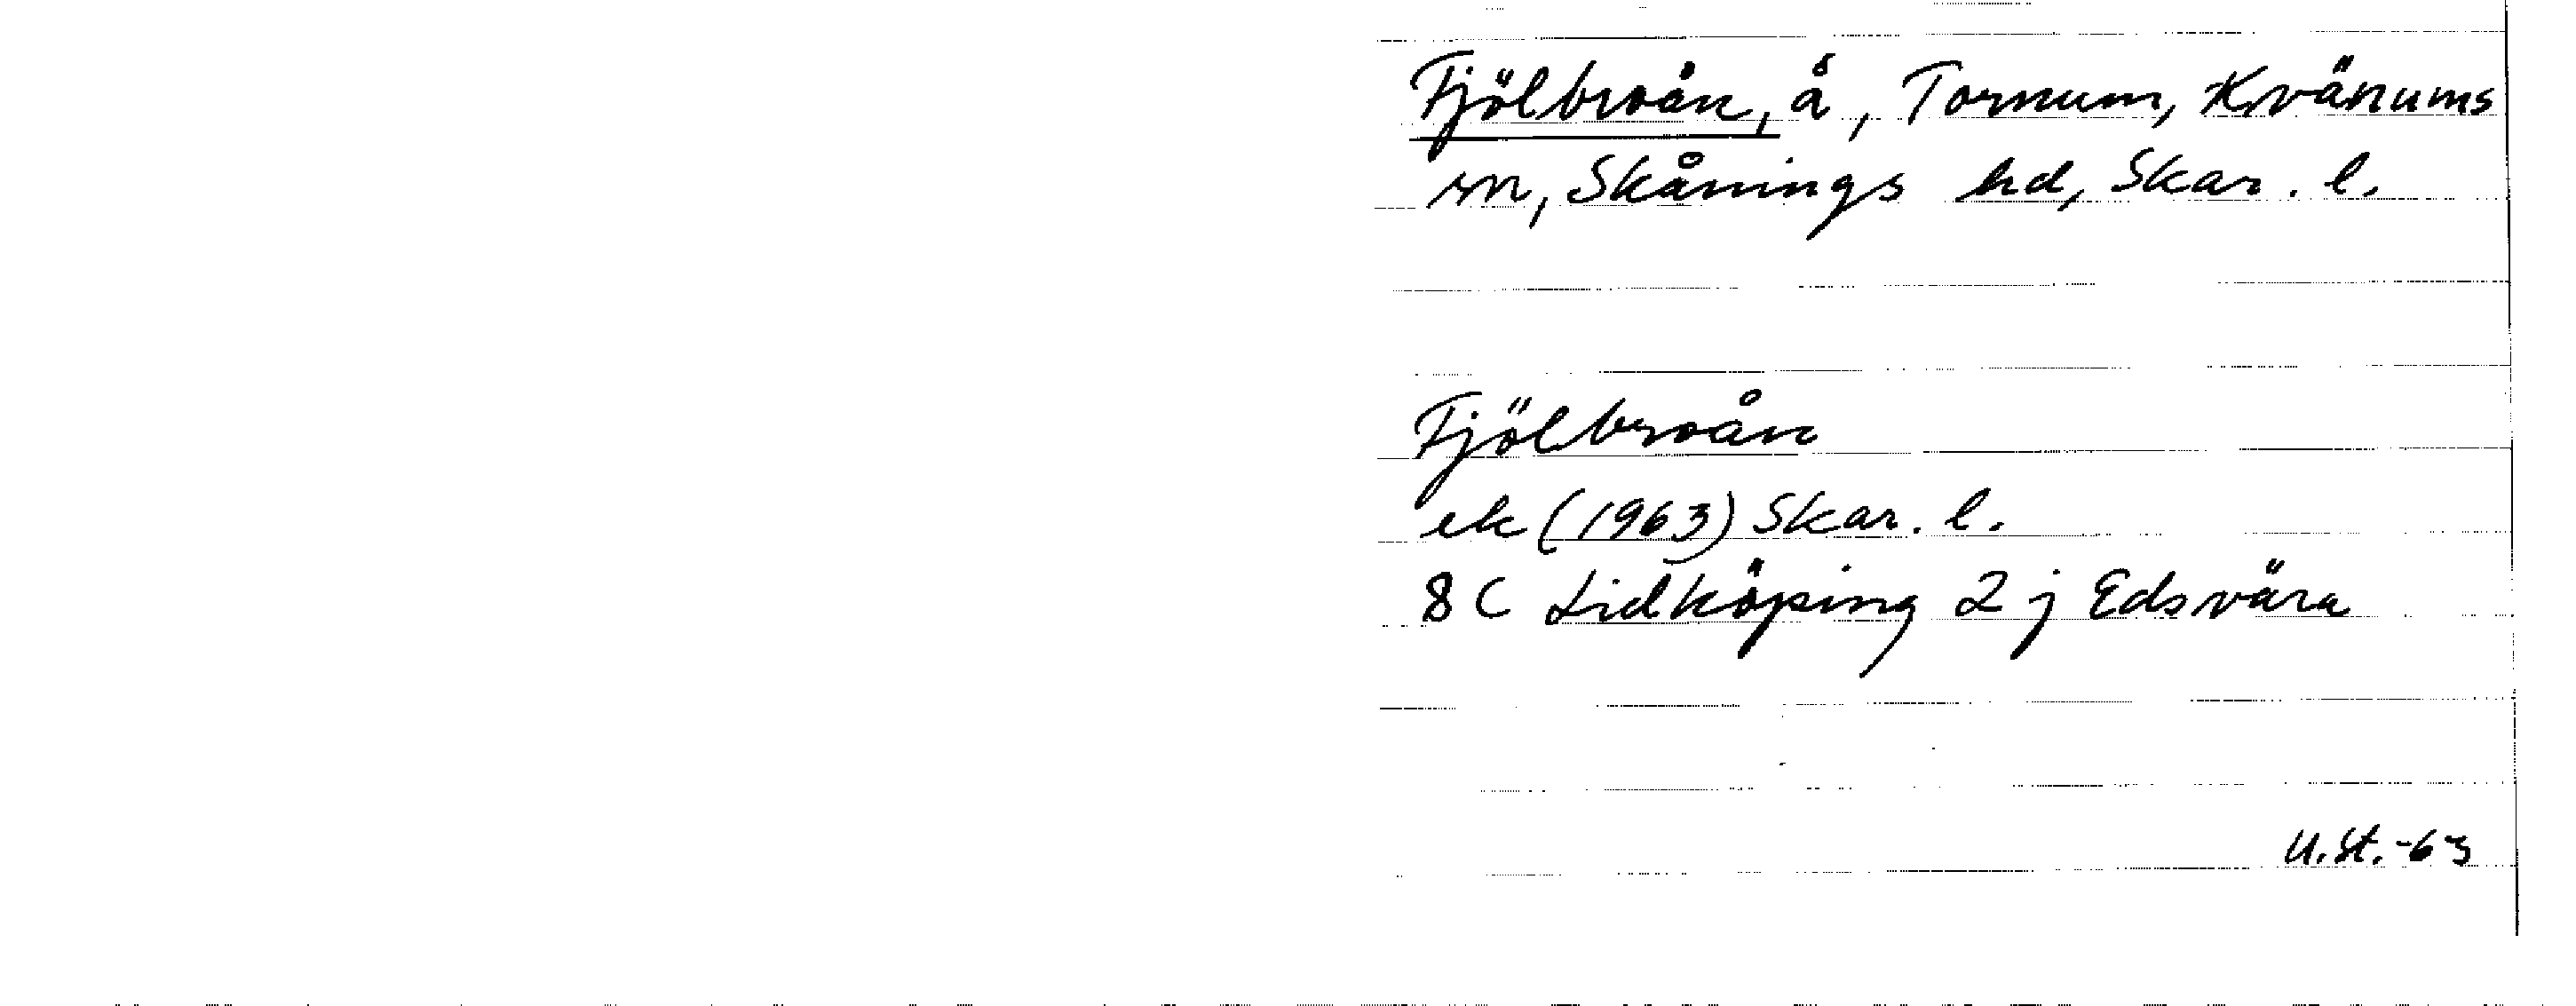 Fjölbroån, å, Tornum, Kvänums
sn, Skånings hd, Skar. l.
Fjölbroån
ek (1963) Skar. l.
8 C Lidköping 2 j Edsvära
U.St.-63